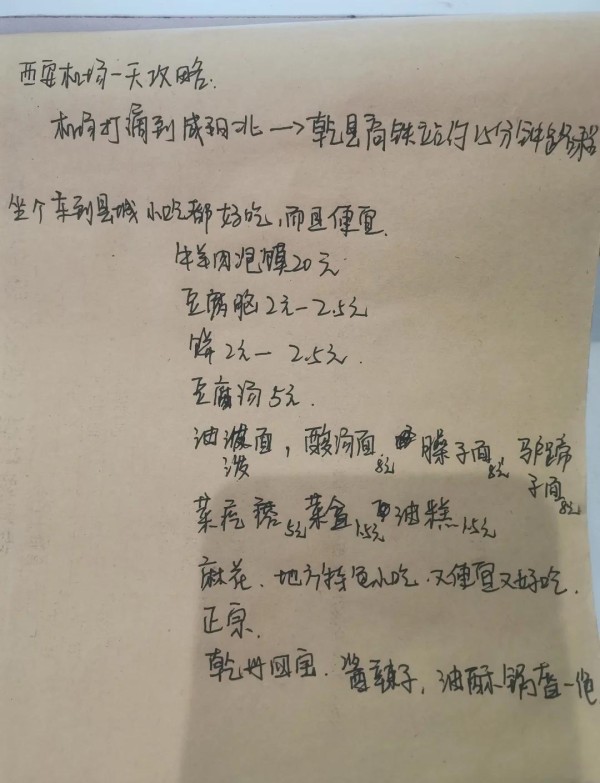 西安机场一天攻略.
机场打滴到咸阳北→乾县高铁站约15分钟路程
坐个车到县城小吃都好吃,而且便宜.
牛羊肉泡馍20元
豆腐脑2元—2.5元
饼2元—2.5元.
豆腐汤5元.
油泼面,酸汤面8元,臊子面8元,驴蹄子面8元
菜疙瘩5元菜盒1.5元油糕1.5元
麻花.地方特色小吃.又便宜又好吃.
正宗.
乾州四宝.酱辣子,油酥锅盔一绝